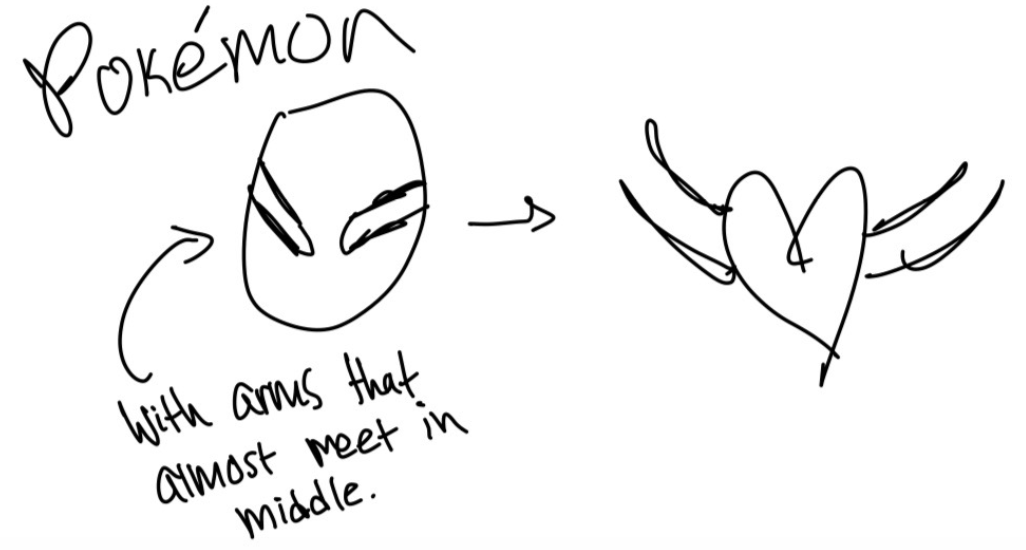 Pokémon
With arms that
almost meet in
middle.